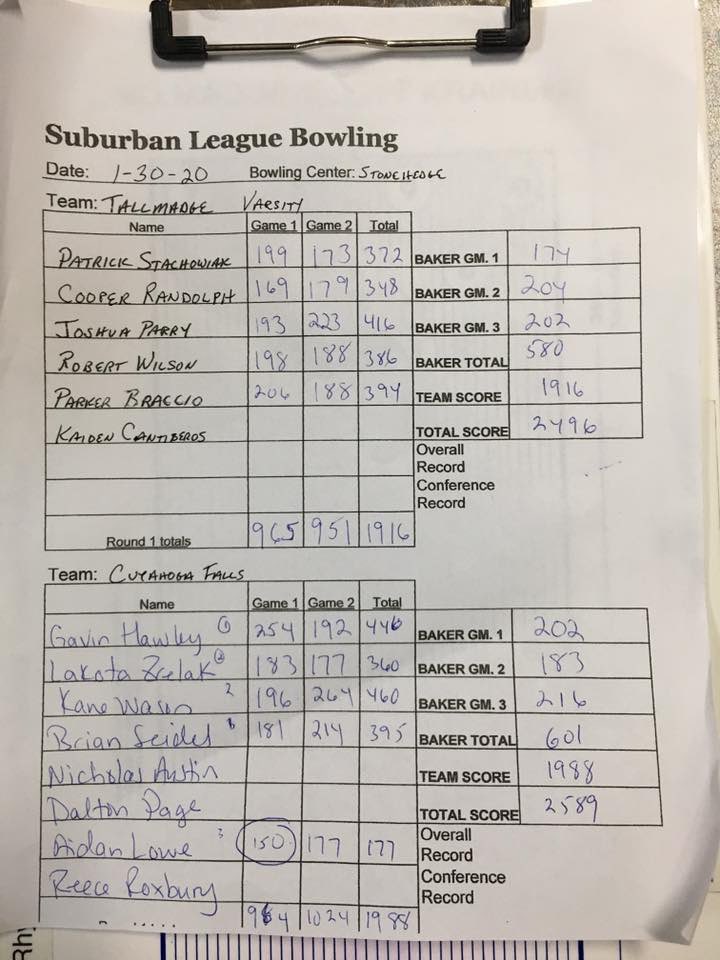 Suburban League Bowling
Date: 1-30-20 Bowling Center: STONEHEDGE
Team: TALLMADGE VARSITY
Name Game 1 Game 2 Total
PATRICK STACHOWIAK 199 173 372 BAKER GM. 1 174
COOPER RANDOLPH 169 179 348 BAKER GM. 2 204
JOSHUA PARRY 193 223 416 BAKER GM. 3 202
ROBERT WILSON 198 188 386 BAKER TOTAL 580
PARKER BRACCIO 206 188 394 TEAM SCORE 1916
KAIDEN CANTIBEROS TOTAL SCORE 2496
Overall
Record
Conference
Record
Round 1 totals 965 951 1916
Team: CUYAHOGA FALLS
Name Game 1 Game 2 Total
Gavin Hawley 254 192 446 BAKER GM. 1 202
Lakota 183 177 360 BAKER GM. 2 183
Kane Wason 2 196 264 460 BAKER GM. 3 216
Brian Seidel 181 214 395 BAKER TOTAL 601
Nicholas Austin TEAM SCORE 1988
Dalton Page TOTAL SCORE 2589
Aidan Lowe 3 150 177 177 Overall
Record
Reece Roxbury Conference
Record
964 1024 1988